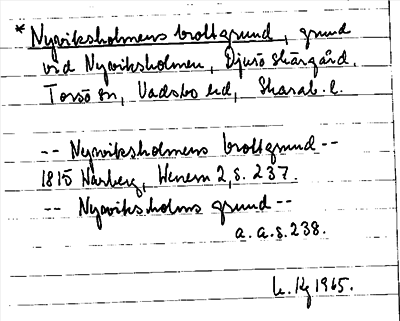 * Nyviksholmens brottgrund, grund
vid Nyviksholmen, Djurö skärgård.
Torsö sn, Vadsbo hd, Skarab. l.
-- Nyviksholmens brottgrund --
1815 Warberg, Wenern 2, s. 237.
-- Nyviksholms grund --
a. a. s. 238.
1965.